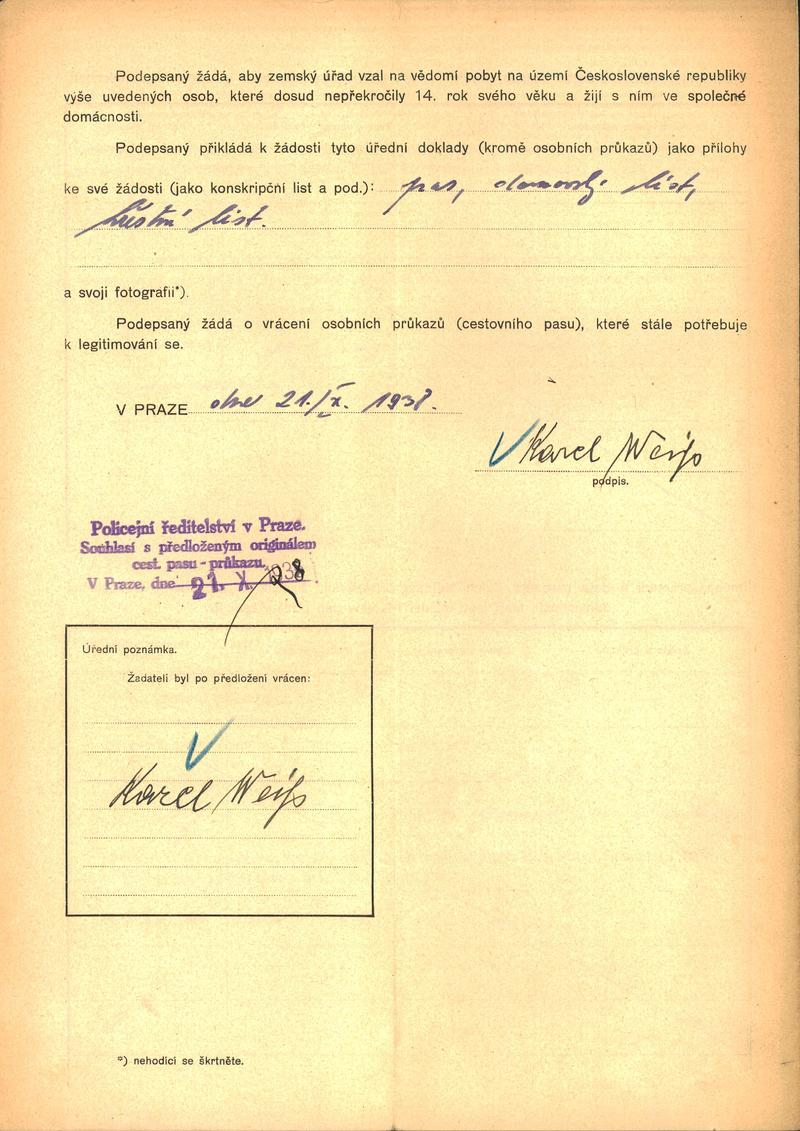 Podepsaný žádá, aby zemský úřad vzal na vědomí pobyt na území Československé republiky
výše uvedených osob, které dosud nepřekročily 14. rok svého věku a žijí s ním ve společné
domácnosti.
Podepsaný přikládá k žádosti tyto úřední doklady (kromě osobních průkazů) jako přílohy
ke své žádosti (jako konskripční list a pod.): pas, domovský list,
křestní list.
a svoji fotografii*).
Podepsaný žádá o vrácení osobních průkazů (cestovního pasu), které stále potřebuje
k legitimování se.
V PRAZE dne 21./X. 1938.
Karel Weiß
podpis.
Policejní ředitelství v Praze.
Souhlasí s předloženým originálem
cest. pasu - průkazu.
V Praze, dne 21. X. 1938
Úřední poznámka.
Žadateli byl po předložení vrácen:
Karel Weiß
*) nehodící se škrtněte.